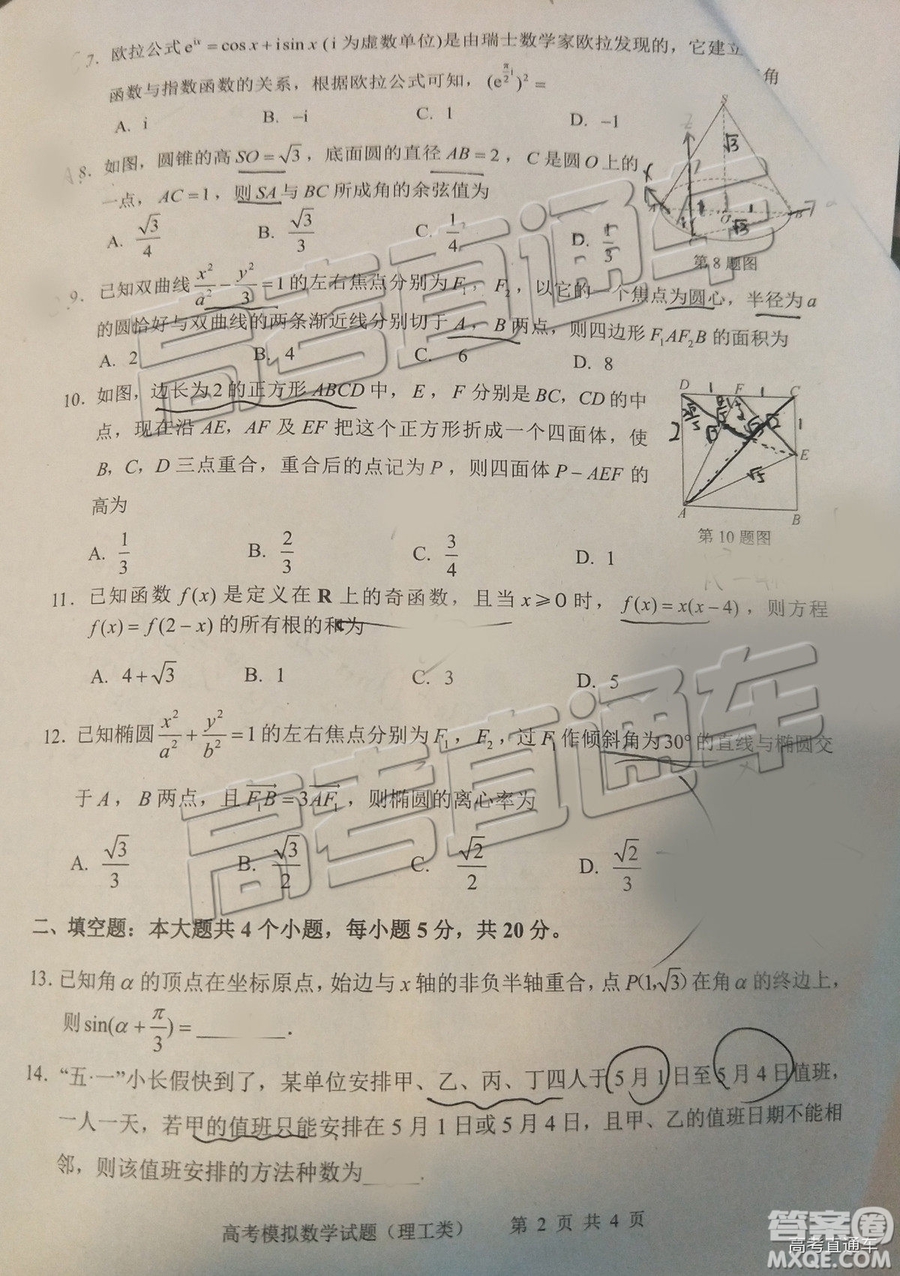 7. 欧拉公式 e^{ix} = cos x + i sin x ( i 为虚数单位)是由瑞士数学家欧拉发现的，它建立
角
函数与指数函数的关系，根据欧拉公式可知，(e^{\frac{π}{2}i})² =
A. i B. −i C. 1 D. −1
8. 如图，圆锥的高 SO = √3，底面圆的直径 AB = 2，C 是圆 O 上的
一点，AC = 1，则 SA 与 BC 所成角的余弦值为
A. √3/4 B. √3/3 C. 1/4 D. 1/3
第 8 题图
9. 已知双曲线 x²/a² − y²/3 = 1 的左右焦点分别为 F₁，F₂，以它的一个焦点为圆心，半径为 a
的圆恰好与双曲线的两条渐近线分别切于 A，B 两点，则四边形 F₁AF₂B 的面积为
A. 2 B. 4 C. 6 D. 8
10. 如图，边长为 2 的正方形 ABCD 中，E，F 分别是 BC，CD 的中
点，现在沿 AE，AF 及 EF 把这个正方形折成一个四面体，使
B，C，D 三点重合，重合后的点记为 P，则四面体 P − AEF 的
高为
A. 1/3 B. 2/3 C. 3/4 D. 1
D F C
E
A B
第 10 题图
11. 已知函数 f(x) 是定义在 R 上的奇函数，且当 x ⩾ 0 时，f(x) = x(x − 4)，则方程
f(x) = f(2 − x) 的所有根的和为
A. 4 + √3 B. 1 C. 3 D. 5
12. 已知椭圆 x²/a² + y²/b² = 1 的左右焦点分别为 F₁，F₂，过 F₁ 作倾斜角为 30° 的直线与椭圆交
于 A，B 两点，且 F₁B = 3AF₁，则椭圆的离心率为
A. √3/3 B. √3/2 C. √2/2 D. √2/3
二、填空题：本大题共 4 个小题，每小题 5 分，共 20 分。
13. 已知角 α 的顶点在坐标原点，始边与 x 轴的非负半轴重合，点 P(1,√3) 在角 α 的终边上，
则 sin(α + π/3) = ______.
14. “五·一”小长假快到了，某单位安排甲、乙、丙、丁四人于 5 月 1 日至 5 月 4 日值班，
一人一天，若甲的值班只能安排在 5 月 1 日或 5 月 4 日，且甲、乙的值班日期不能相
邻，则该值班安排的方法种数为______
高考模拟数学试题（理工类） 第 2 页 共 4 页
高考直通车
高考直通车
答案卷
高考直通车
MXQE.COM